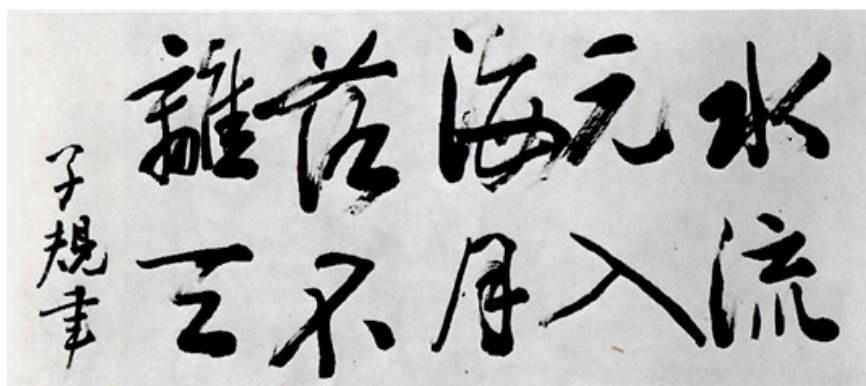 水流
元入
海月
落不
離天
子規書